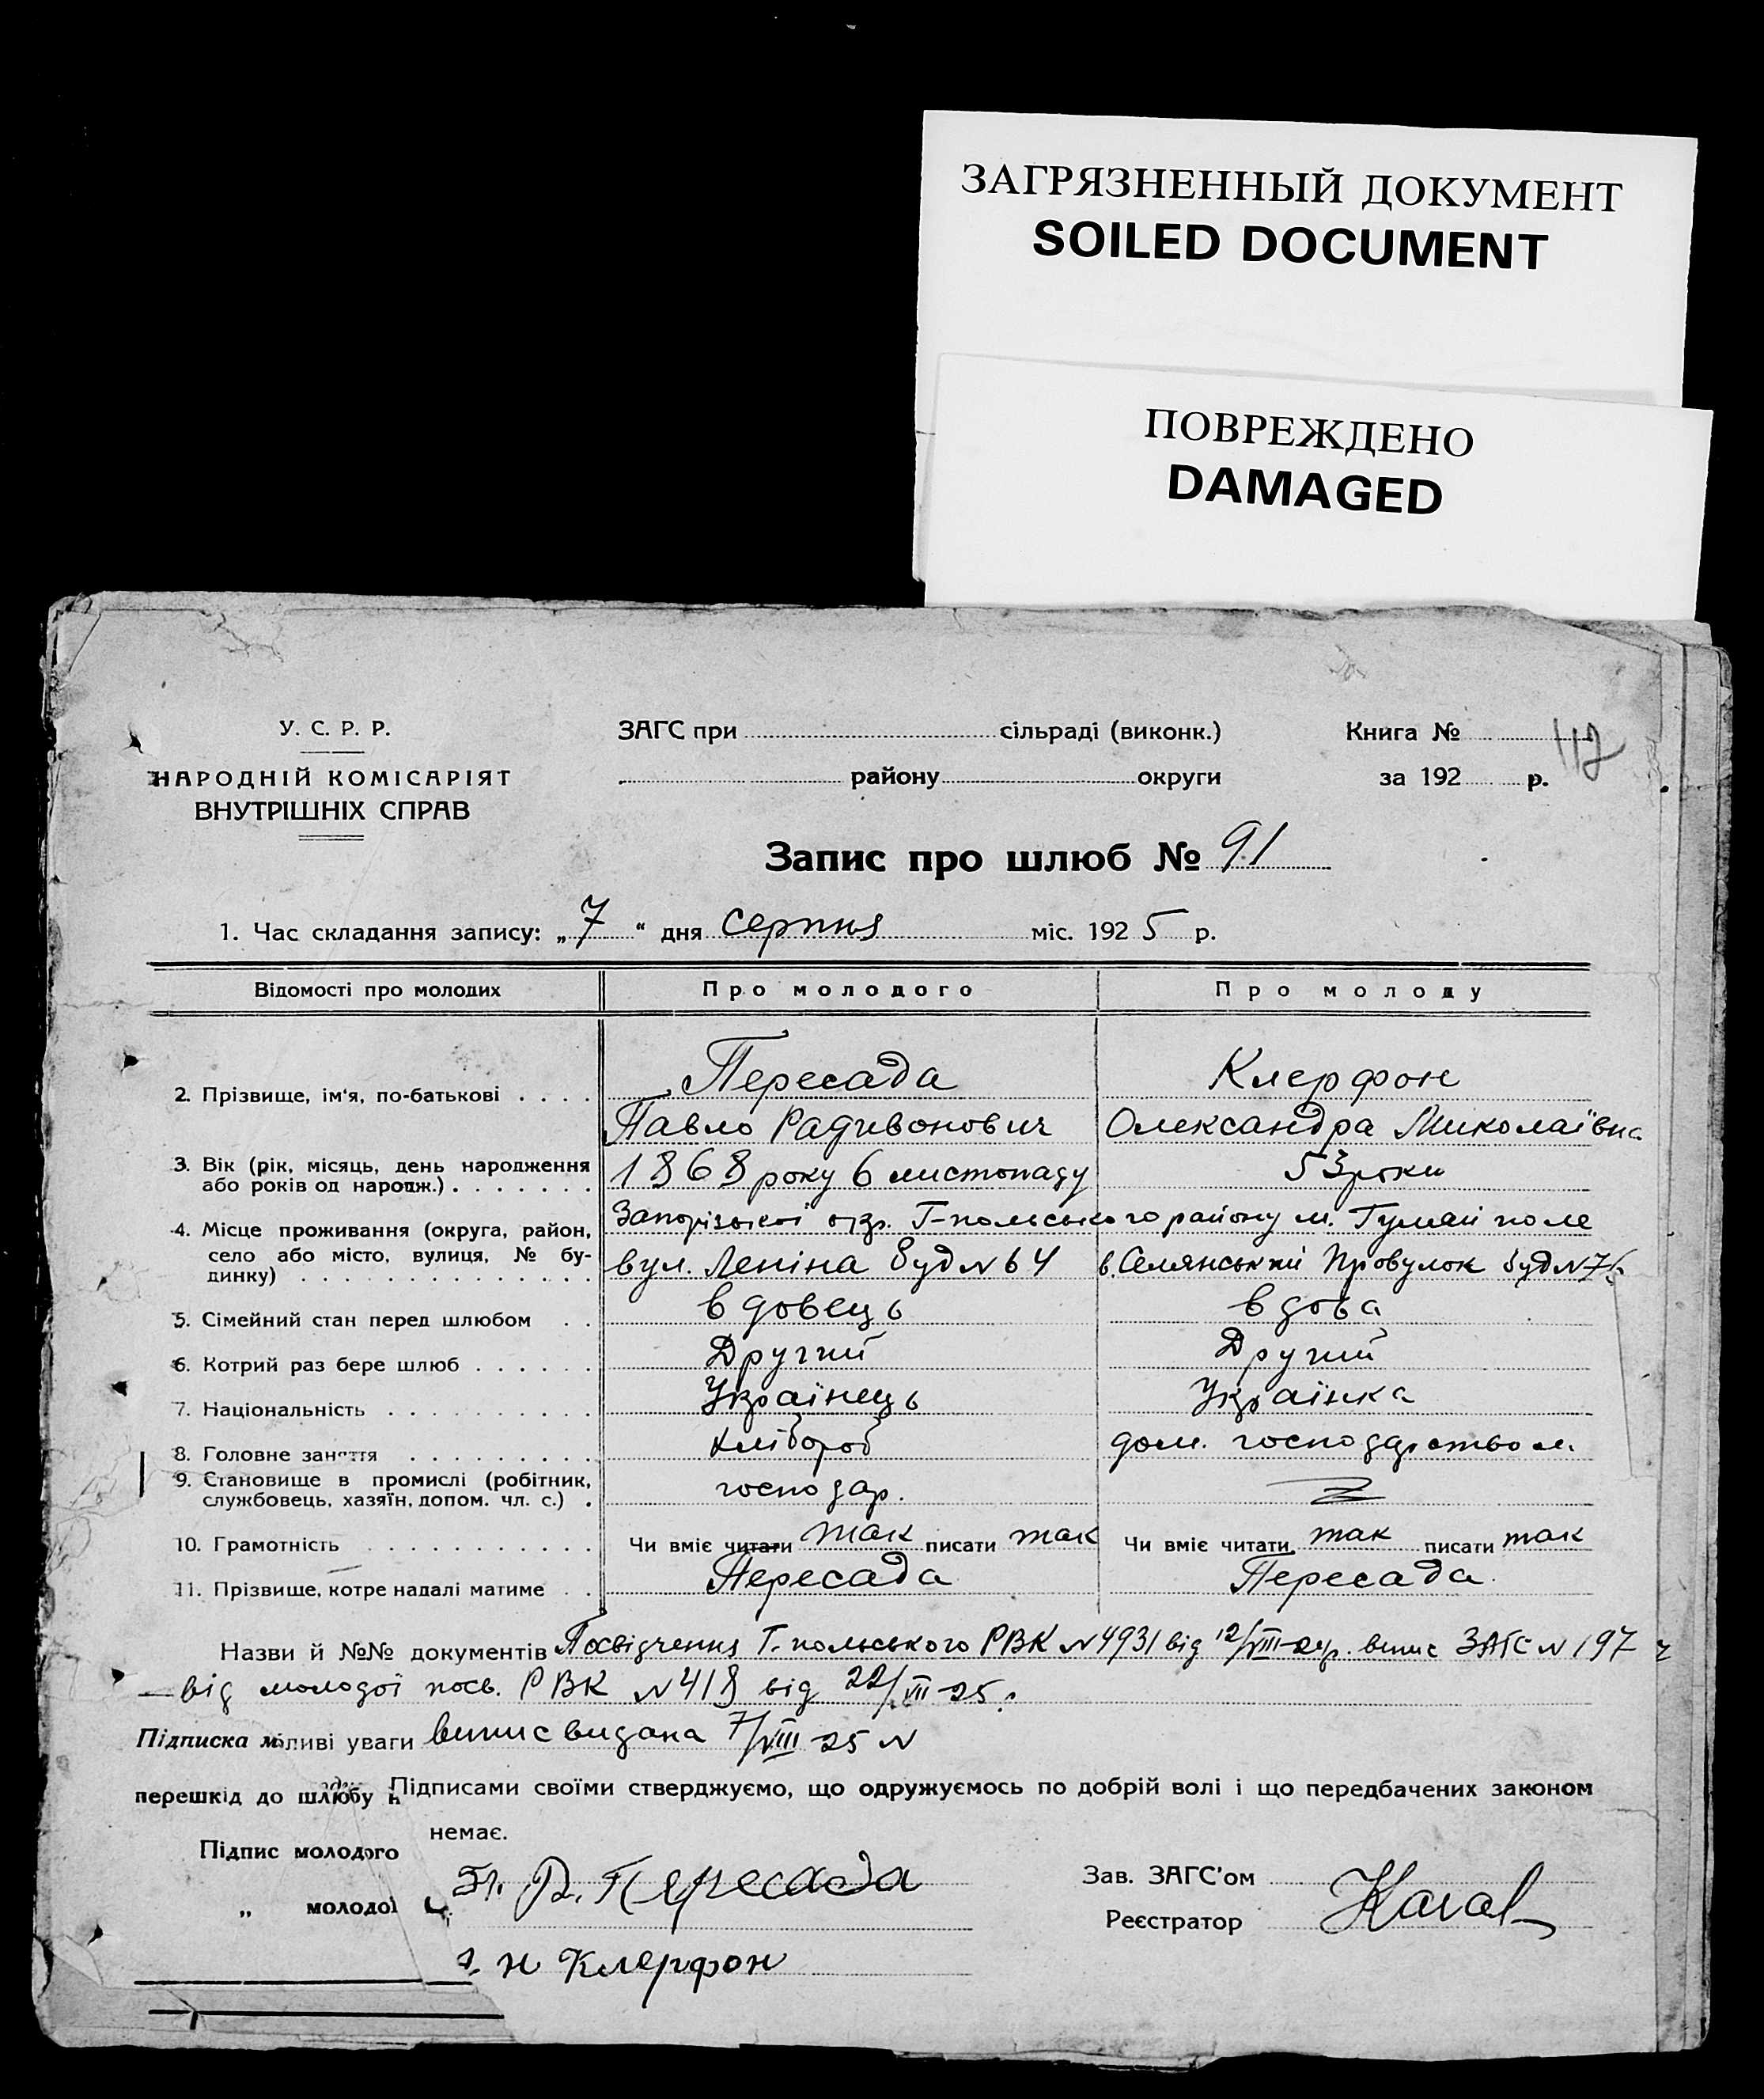 ЗАГРЯЗНЕННЫЙ ДОКУМЕНТ
SOILED DOCUMENT
ПОВРЕЖДЕНО
DAMAGED
У. С. Р. Р.
НАРОДНІЙ КОМІСАРІЯТ
ВНУТРІШНІХ СПРАВ
ЗАГС при сільраді (виконк.)
району округи
Книга №
за 192 р.
112
Запис про шлюб № 91
1. Час складання запису: „7“ дня серпня міс. 1925 р.
Відомості про молодих Про молодого Про молоду
2. Прізвище, ім'я, по-батькові Пересада Клерфон
Павло Радивонович Олександра Миколаївна
3. Вік (рік, місяць, день народження або років од народж.) 1868 року 6 листопаду 53 роки
4. Місце проживання (округа, район, село або місто, вулиця, № будинку) Запорізької окр. Г-польського району м. Гуляй поле
вул. Леніна буд N 64 в. Селянський Провулок буд N 76
5. Сімейний стан перед шлюбом вдовець вдова
6. Котрий раз бере шлюб Другий Другий
7. Національність Українець Українка
8. Головне заняття хлібороб дом. господарством
9. Становище в промислі (робітник, службовець, хазяїн, допом. чл. с.) господар.
10. Грамотність Чи вміє читати так писати так Чи вміє читати так писати так
11. Прізвище, котре надалі матиме Пересада Пересада
Назви й №№ документів Посвідчення Г-польського РВК N 4931 від 12/VIII-24р. випис ЗАГС N 197
від молодої посв. РВК N 418 від 22/VII-25.
Підписка м ливі уваги випис видана 7/VIII-25 N
перешкід до шлюбу н Підписами своїми стверджуємо, що одружуємось по добрій волі і що передбачених законом
немає.
Підпис молодого
П. Пересада
„ молодої
Н Клерфон
Зав. ЗАГС'ом
Реєстратор